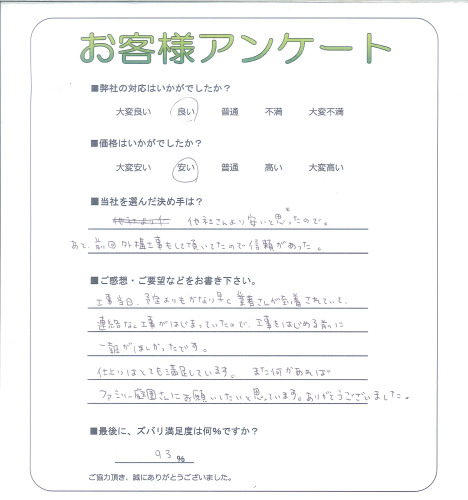 お客様アンケート
■弊社の対応はいかがでしたか？
大変良い 良い 普通 不満 大変不満
■価格はいかがでしたか？
大変安い 安い 普通 高い 大変高い
■当社を選んだ決め手は？
他社さんより安いと思ったので。
あと、前回外構工事もして頂いてたので信頼があった。
■ご感想・ご要望などをお書き下さい。
工事当日、予定よりもかなり早く業者さんが到着されていて、
連絡なく工事がはじまっていたので、工事をはじめる前に
一報がほしかったです。
仕上りはとても満足しています。 また何かあれば
ファミリー庭園さんにお願いしたいと思っています。ありがとうございました。
■最後に、ズバリ満足度は何%ですか？
93 %
ご協力頂き、誠にありがとうございました。